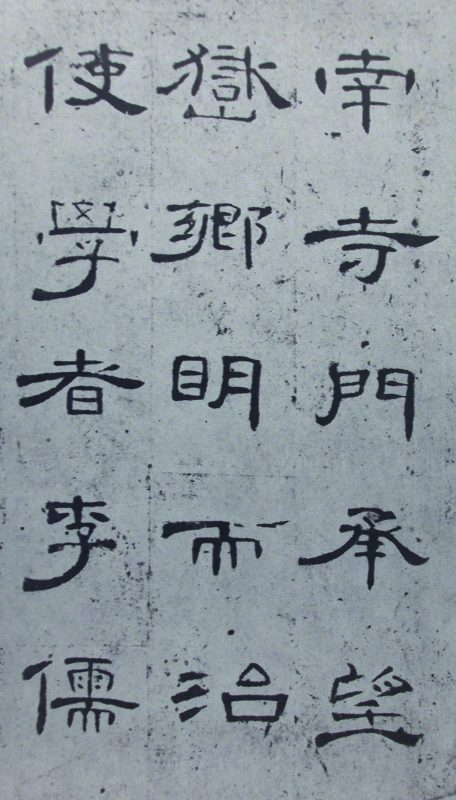 南寺門承望
嶽鄉眀而治
使學者李儒